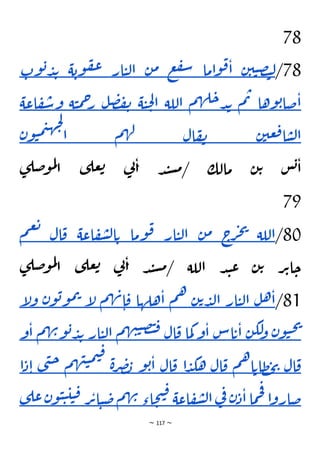 78
78/ليصيبن أقواما سفع من النار عقوبة بذنوب
أصابوها ثم يدخلهم الله الجنة بفضل رحمته وشفاعة
الشافعين يقال لهم الجهنميون
أنس بن مالك /مسند أبي يعلى الموصلي
79
80/الله يخرج من النار قوما بالشفاعة قال نعم
جابر بن عبد الله /مسند أبي يعلى الموصلي
81/أهل النار الذين هم أهلها فإنهم لا يموتون ولا
يحيون ولكن أناس أو كما قال تصيبهم النار بذنوبهم أو
قال بخطاياهم قال هكذا قال أبو نضرة فيميتهم حتى إذا
صاروا فحما أذن في الشفاعة فيجاء بهم ضبائر فينبتون على
~ 117 ~